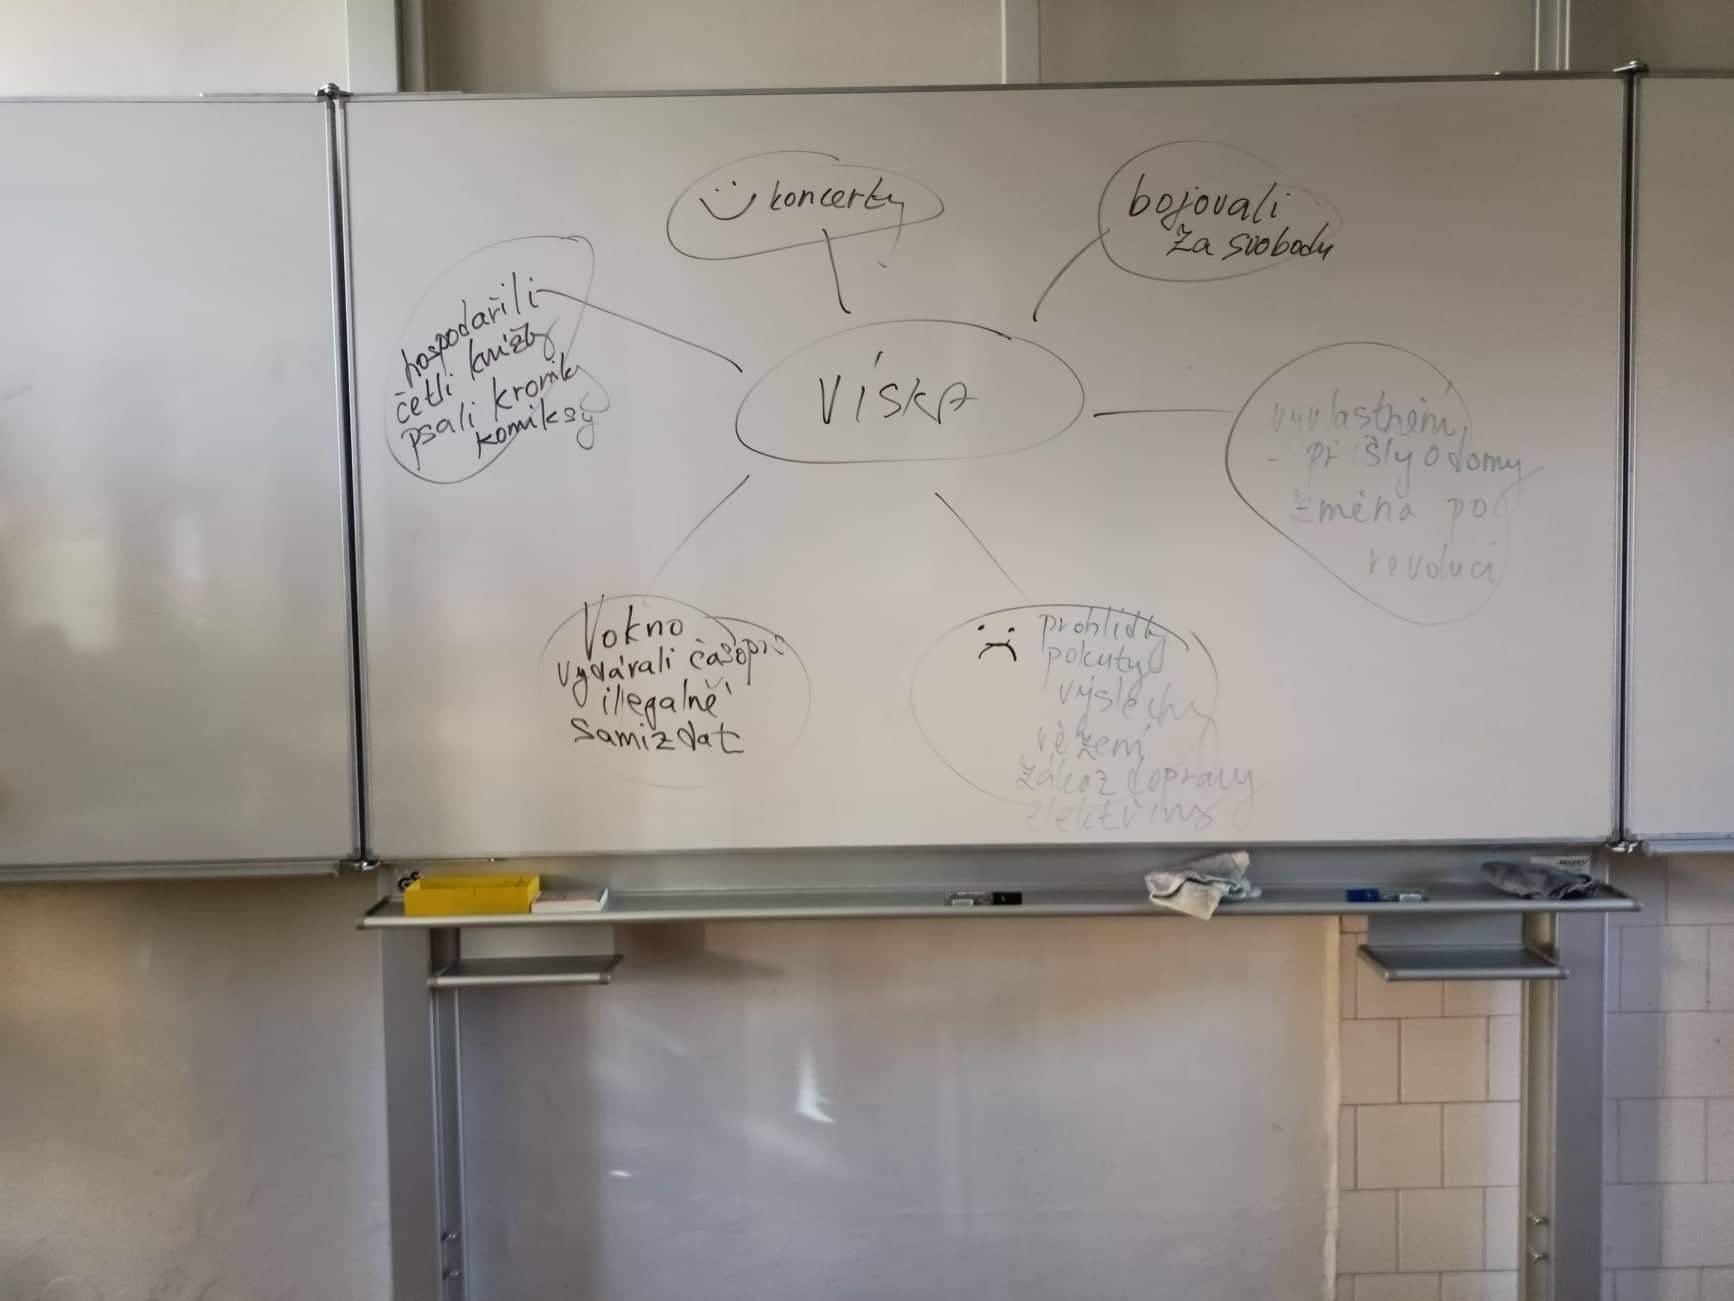 koncerty
bojovali
za svobodu
hospodařili
četli knížky
psali kroniky
komiksy
VÍSKA
vyvlastnění
- přišly o domy
změna po
revoluci
Vokno
vydávali časopis
ilegalně
samizdat
prohlídky
pokuty
výslechy
vězení
zákaz dopravy
elektřiny